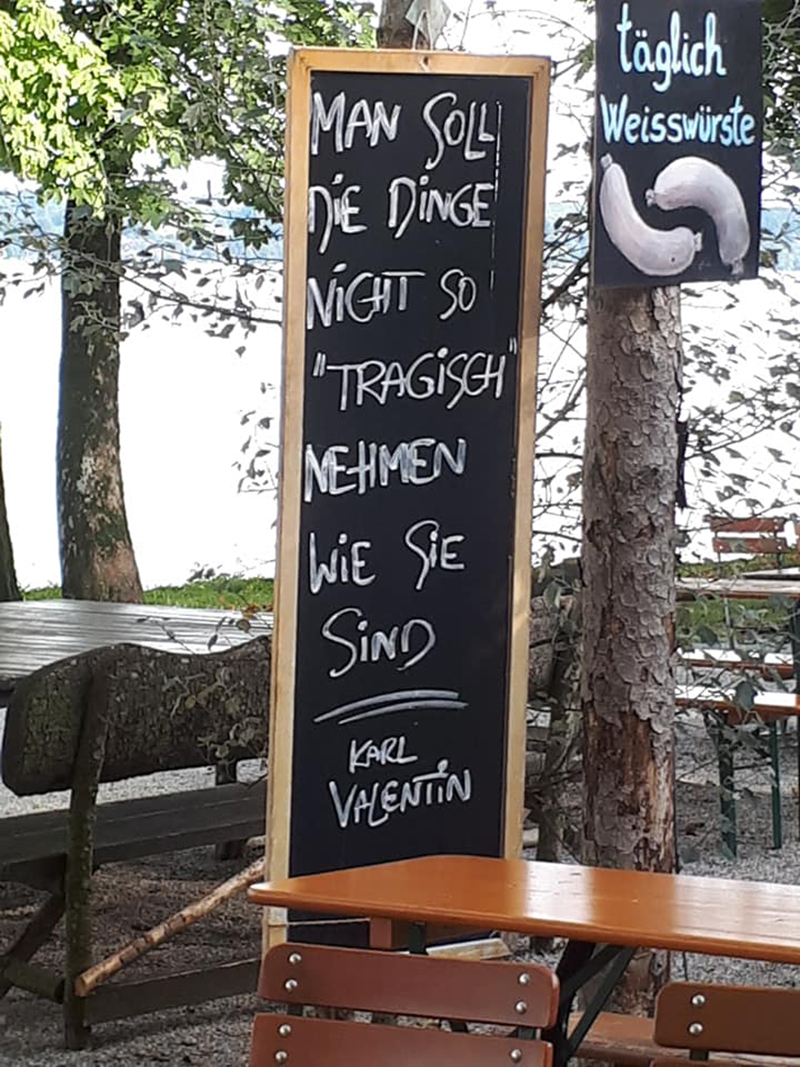 MAN SOLL
DIE DINGE
NICHT SO
"TRAGISCH"
NEHMEN
WIE SIE
SIND
KARL
VALENTIN
täglich
Weisswürste